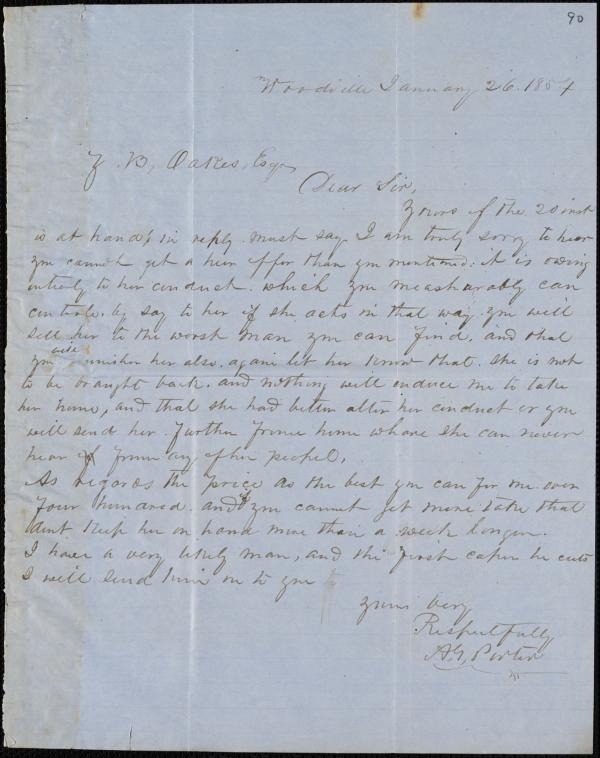 90
Woodville January 26. 1857
Z. B, Oakes, Esqr
Dear Sir,
Yours of the 20 inst
is at hand, in reply. must say I am truly sorry to hear
you cannot get a better offer than you mentioned: it is owing
intirely to her conduct. which you measurably can
controle. by say to her if she acts in that way. you will
sell her to the worst man you can find. and that
you will punish her also. again let her know that. she is not
to be braught back. and nothing will enduce me to take
her home, and that she had better alter her conduct or you
will send her. further frome home whare she can never
hear of frome any of her peopel.
As regards the price as the best you can for me. even
four hundred. and if you cannot get more take that
dont keep her on hand more than a week longer.
I have a very likely man, and the first caper he cuts
I will send him on to you
yours very
Respectfully
A. G, Porter